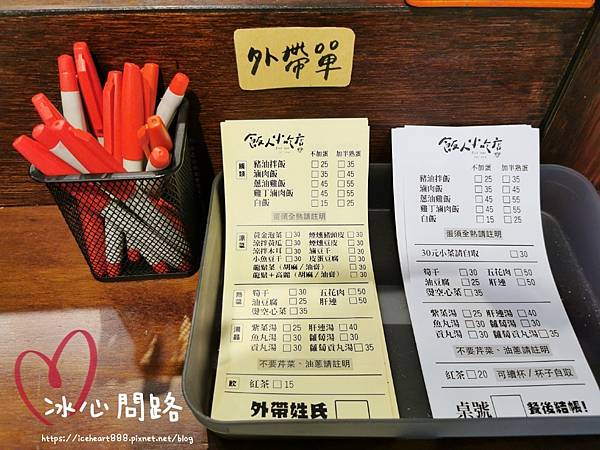 外帶單
飯人小吃店
不加蛋 加半熟蛋
飯類
豬油拌飯 □25 □35
滷肉飯 □35 □45
蔥油雞飯 □45 □55
雞丁滷肉飯 □45 □55
白飯 □15
蛋須全熟請註明
涼菜
黃金泡菜□30 煙燻豬頭皮□30
涼拌黃瓜□30 煙燻豆皮□30
涼拌木耳□30 滷豆干□30
小魚豆干□30 皮蛋豆腐□30
龍鬚菜(胡麻/油膏)□30
龍鬚+高麗(胡麻/油膏)□30
熱菜
筍干 □30 五花肉□50
油豆腐 □25 肝連 □50
燙空心菜□35
湯品
紫菜湯□25 肝連湯□40
魚丸湯□30 蘿蔔湯□30
貢丸湯□30 蘿蔔貢丸湯□35
不要芹菜、油蔥請註明
飲
紅茶□15
外帶姓氏
飯人小吃店
不加蛋 加半熟蛋
豬油拌飯 □25 □35
滷肉飯 □35 □45
蔥油雞飯 □45 □55
雞丁滷肉飯 □45 □55
白飯 □15
蛋須全熟請註明
30元小菜請自取 □30
筍干 □30 五花肉□50
油豆腐 □25 肝連 □50
燙空心菜□35
紫菜湯□25 肝連湯□40
魚丸湯□30 蘿蔔湯□30
貢丸湯□30 蘿蔔貢丸湯□35
不要芹菜、油蔥請註明
紅茶□20 可續杯/杯子自取
桌號 餐後結帳!
冰心問路
https://iceheart888.pixnet.net/blog